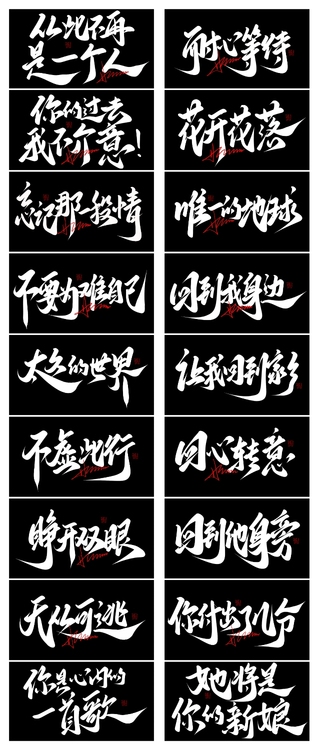 从此不再
是一个人
耐心等待
你的过去
我不介意!
花开花落
忘记那段情
唯一的地球
不要为难自己
回到我身边
太久的世界
让我回到家乡
不虚此行
回心转意
睁开双眼
回到他身旁
无从可逃
你付出了几分
你是心内的
一首歌
她将是
你的新娘